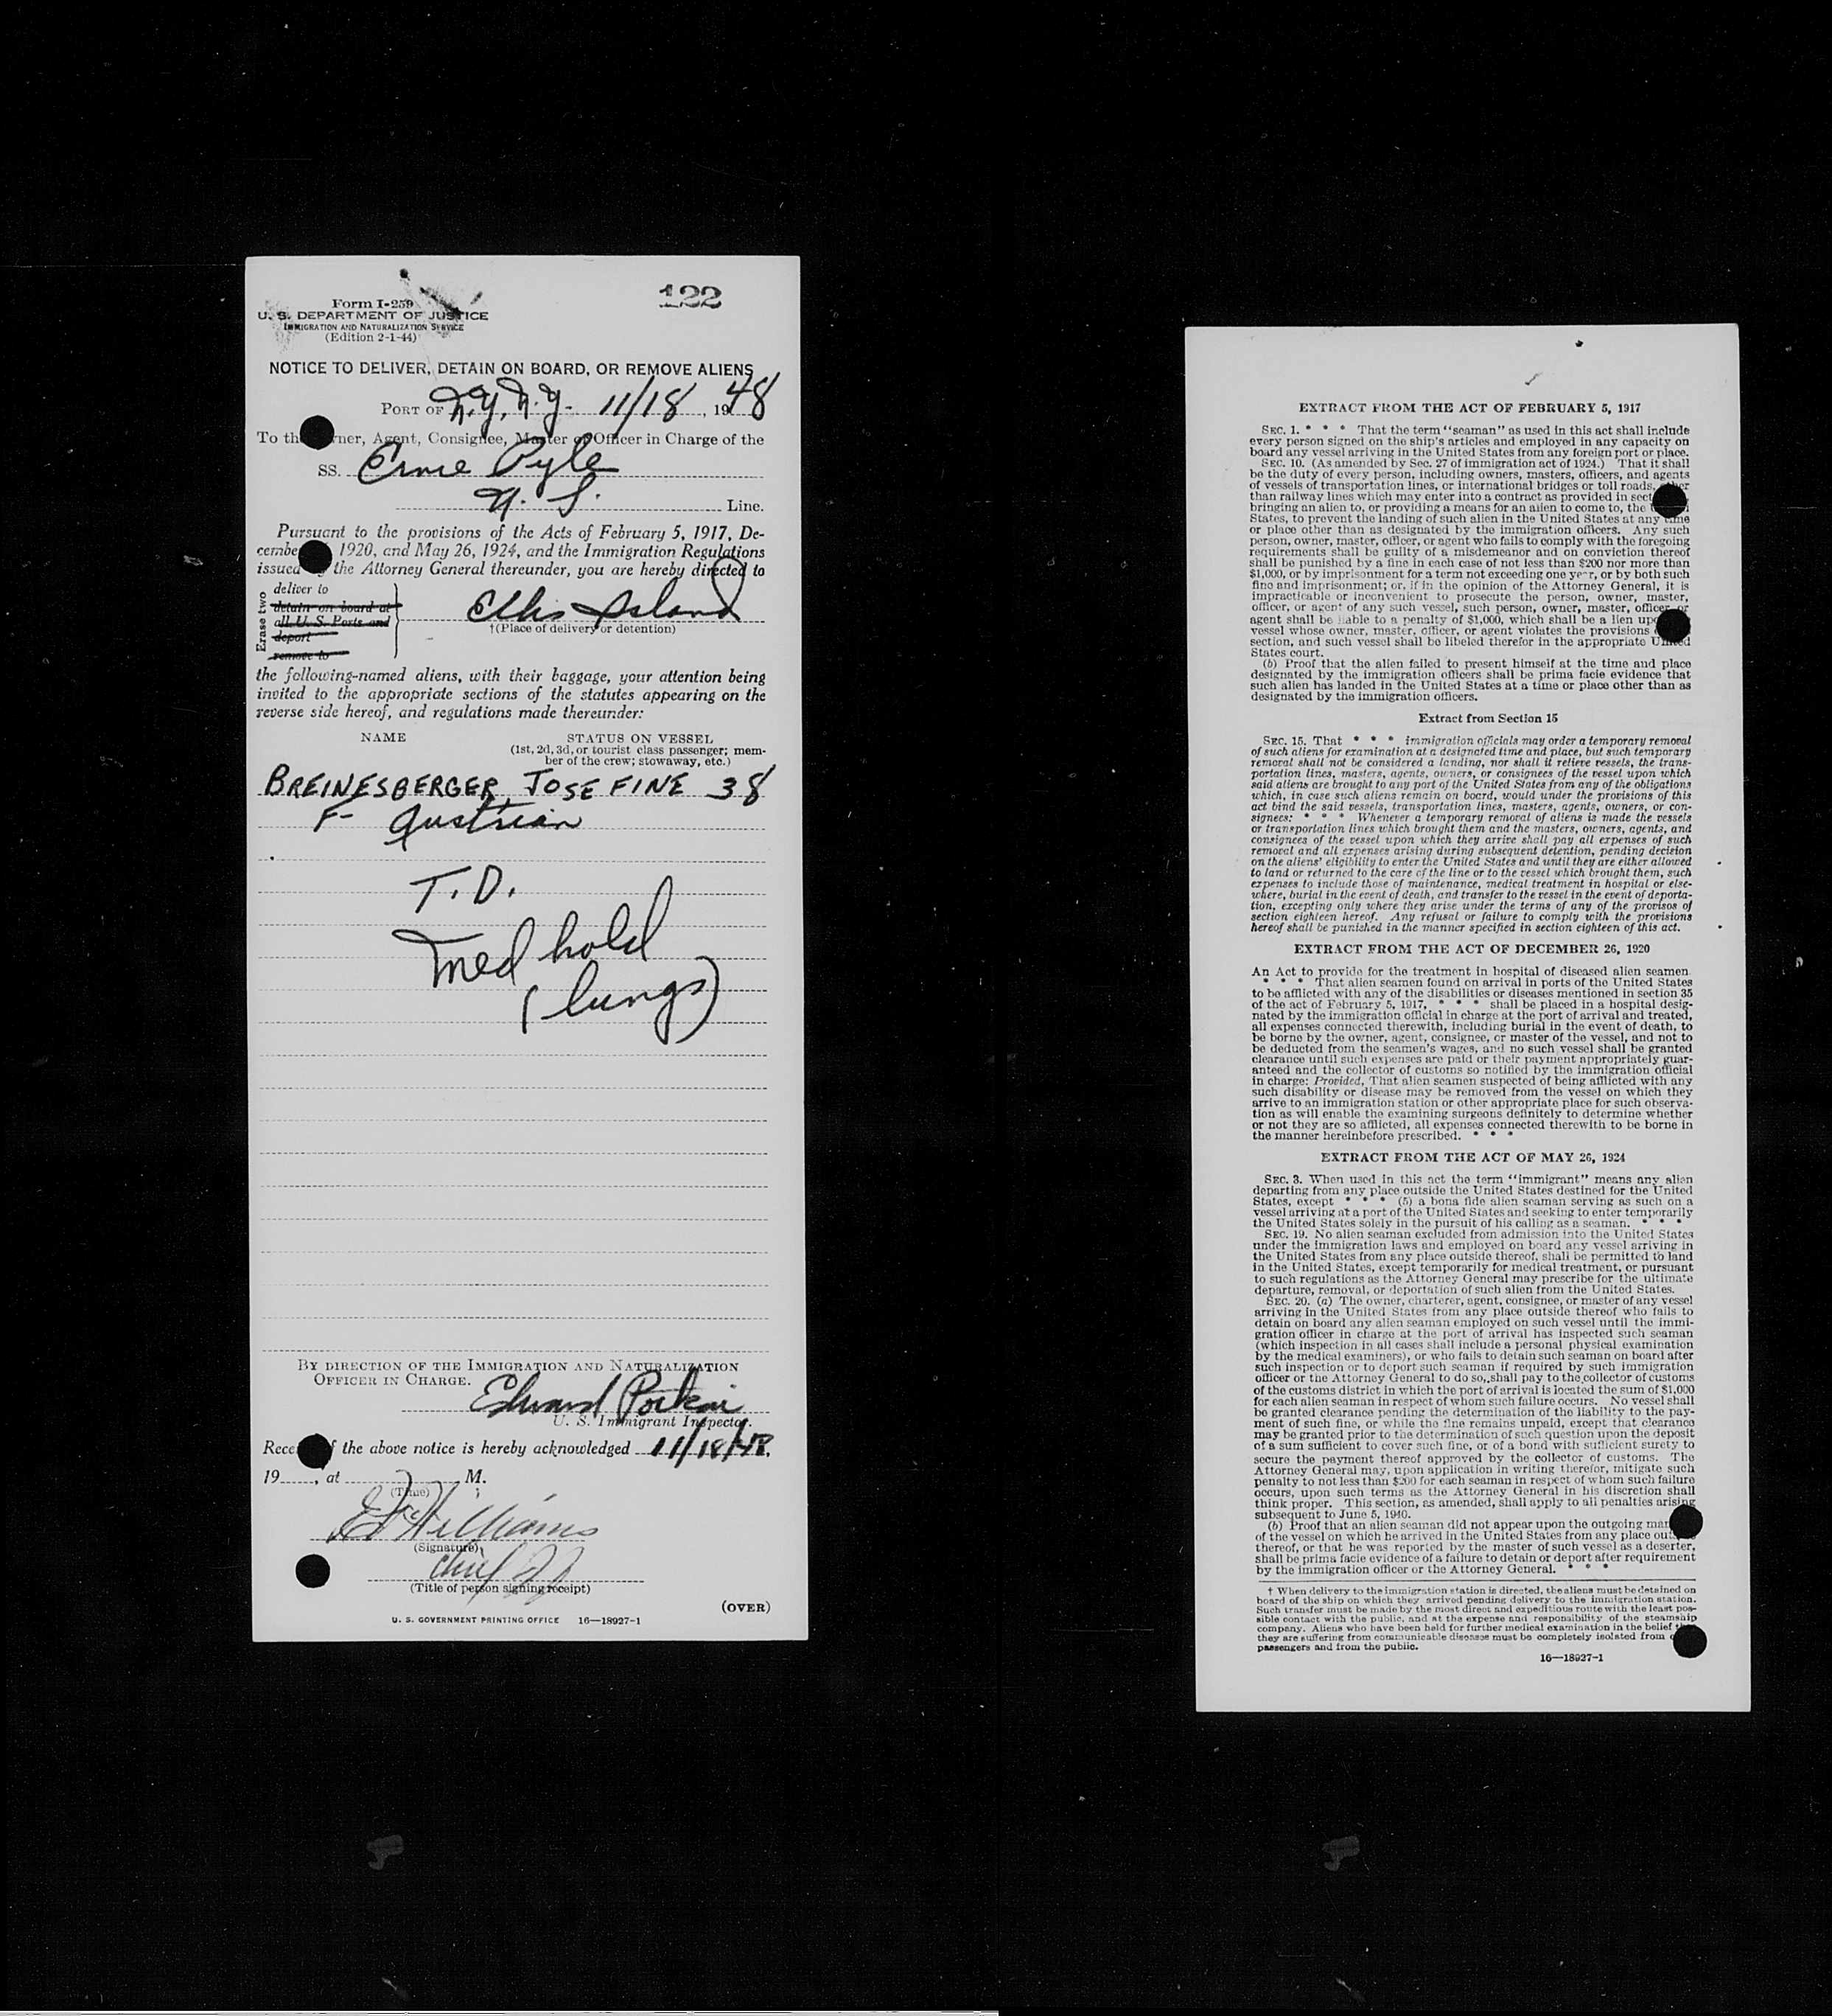 122
Form I-259
U. S. DEPARTMENT OF JUSTICE
IMMIGRATION AND NATURALIZATION SERVICE
(Edition 2-1-44)
NOTICE TO DELIVER, DETAIN ON BOARD, OR REMOVE ALIENS
PORT OF N.Y, N.Y. 11/18, 1948
To th ner, Agent, Consignee, Master or Officer in Charge of the
SS. Ernie Pyle
Line.
Pursuant to the provisions of the Acts of February 5, 1917, De-
cembe 1920, and May 26, 1924, and the Immigration Regulations
issued the Attorney General thereunder, you are hereby directed to
Erase two
deliver to
detain on board at
all U. S. Ports and
deport
remove to
Ellis Island
†(Place of delivery or detention)
the following-named aliens, with their baggage, your attention being
invited to the appropriate sections of the statutes appearing on the
reverse side hereof, and regulations made thereunder:
NAME STATUS ON VESSEL
(1st, 2d, 3d, or tourist class passenger; mem-
ber of the crew; stowaway, etc.)
BREINESBERGER, JOSEFINE 38
F- Austrian
T.D.
Med hold
(lungs)
BY DIRECTION OF THE IMMIGRATION AND NATURALIZATION
OFFICER IN CHARGE.
Edward
U. S. Immigrant Inspector.
Rece f the above notice is hereby acknowledged 11/18/48,
19...., at M.
(Time)
Williams
(Signature)
Chief
(Title of person signing receipt)
(OVER)
U. S. GOVERNMENT PRINTING OFFICE 16—18927-1
EXTRACT FROM THE ACT OF FEBRUARY 5, 1917
SEC. 1. * * * That the term "seaman" as used in this act shall include
every person signed on the ship's articles and employed in any capacity on
board any vessel arriving in the United States from any foreign port or place.
SEC. 10. (As amended by Sec. 27 of immigration act of 1924.) That it shall
be the duty of every person, including owners, masters, officers, and agents
of vessels of transportation lines, or international bridges or toll roads, other
than railway lines which may enter into a contract as provided in sect
bringing an alien to, or providing a means for an alien to come to, the
States, to prevent the landing of such alien in the United States at any time
or place other than as designated by the immigration officers. Any such
person, owner, master, officer, or agent who fails to comply with the foregoing
requirements shall be guilty of a misdemeanor and on conviction thereof
shall be punished by a fine in each case of not less than $200 nor more than
$1,000, or by imprisonment for a term not exceeding one year, or by both such
fine and imprisonment; or, if in the opinion of the Attorney General, it is
impracticable or inconvenient to prosecute the person, owner, master,
officer, or agent of any such vessel, such person, owner, master, officer or
agent shall be liable to a penalty of $1,000, which shall be a lien up
vessel whose owner, master, officer, or agent violates the provisions
section, and such vessel shall be libeled therefor in the appropriate United
States court.
(b) Proof that the alien failed to present himself at the time and place
designated by the immigration officers shall be prima facie evidence that
such alien has landed in the United States at a time or place other than as
designated by the immigration officers.
Extract from Section 15
SEC. 15. That * * * immigration officials may order a temporary removal
of such aliens for examination at a designated time and place, but such temporary
removal shall not be considered a landing, nor shall it relieve vessels, the trans-
portation lines, masters, agents, owners, or consignees of the vessel upon which
said aliens are brought to any port of the United States from any of the obligations
which, in case such aliens remain on board, would under the provisions of this
act bind the said vessels, transportation lines, masters, agents, owners, or con-
signees: * * * Whenever a temporary removal of aliens is made the vessels
or transportation lines which brought them and the masters, owners, agents, and
consignees of the vessel upon which they arrive shall pay all expenses of such
removal and all expenses arising during subsequent detention, pending decision
on the aliens' eligibility to enter the United States and until they are either allowed
to land or returned to the care of the line or to the vessel which brought them, such
expenses to include those of maintenance, medical treatment in hospital or else-
where, burial in the event of death, and transfer to the vessel in the event of deporta-
tion, excepting only where they arise under the terms of any of the provisos of
section eighteen hereof. Any refusal or failure to comply with the provisions
hereof shall be punished in the manner specified in section eighteen of this act.
EXTRACT FROM THE ACT OF DECEMBER 26, 1920
An Act to provide for the treatment in hospital of diseased alien seamen.
* * * That alien seamen found on arrival in ports of the United States
to be afflicted with any of the disabilities or diseases mentioned in section 35
of the act of February 5, 1917, * * * shall be placed in a hospital desig-
nated by the immigration official in charge at the port of arrival and treated,
all expenses connected therewith, including burial in the event of death, to
be borne by the owner, agent, consignee, or master of the vessel, and not to
be deducted from the seamen's wages, and no such vessel shall be granted
clearance until such expenses are paid or their payment appropriately guar-
anteed and the collector of customs so notified by the immigration official
in charge: Provided, That alien seamen suspected of being afflicted with any
such disability or disease may be removed from the vessel on which they
arrive to an immigration station or other appropriate place for such observa-
tion as will enable the examining surgeons definitely to determine whether
or not they are so afflicted, all expenses connected therewith to be borne in
the manner hereinbefore prescribed. * * *
EXTRACT FROM THE ACT OF MAY 26, 1924
SEC. 3. When used in this act the term "immigrant" means any alien
departing from any place outside the United States destined for the United
States, except * * * (5) a bona fide alien seaman serving as such on a
vessel arriving at a port of the United States and seeking to enter temporarily
the United States solely in the pursuit of his calling as a seaman. * * *
SEC. 19. No alien seaman excluded from admission into the United States
under the immigration laws and employed on board any vessel arriving in
the United States from any place outside thereof, shall be permitted to land
in the United States, except temporarily for medical treatment, or pursuant
to such regulations as the Attorney General may prescribe for the ultimate
departure, removal, or deportation of such alien from the United States.
SEC. 20. (a) The owner, charterer, agent, consignee, or master of any vessel
arriving in the United States from any place outside thereof who fails to
detain on board any alien seaman employed on such vessel until the immi-
gration officer in charge at the port of arrival has inspected such seaman
(which inspection in all cases shall include a personal physical examination
by the medical examiners), or who fails to detain such seaman on board after
such inspection or to deport such seaman if required by such immigration
officer or the Attorney General to do so, shall pay to the collector of customs
of the customs district in which the port of arrival is located the sum of $1,000
for each alien seaman in respect of whom such failure occurs. No vessel shall
be granted clearance pending the determination of the liability to the pay-
ment of such fine, or while the fine remains unpaid, except that clearance
may be granted prior to the determination of such question upon the deposit
of a sum sufficient to cover such fine, or of a bond with sufficient surety to
secure the payment thereof approved by the collector of customs. The
Attorney General may, upon application in writing therefor, mitigate such
penalty to not less than $200 for each seaman in respect of whom such failure
occurs, upon such terms as the Attorney General in his discretion shall
think proper. This section, as amended, shall apply to all penalties arising
subsequent to June 5, 1940.
(b) Proof that an alien seaman did not appear upon the outgoing man
of the vessel on which he arrived in the United States from any place out
thereof, or that he was reported by the master of such vessel as a deserter,
shall be prima facie evidence of a failure to detain or deport after requirement
by the immigration officer or the Attorney General. * * *
† When delivery to the immigration station is directed, the aliens must be detained on
board of the ship on which they arrived pending delivery to the immigration station.
Such transfer must be made by the most direct and expeditious route with the least pos-
sible contact with the public, and at the expense and responsibility of the steamship
company. Aliens who have been held for further medical examination in the belief
they are suffering from communicable diseases must be completely isolated from
passengers and from the public.
16—18927-1